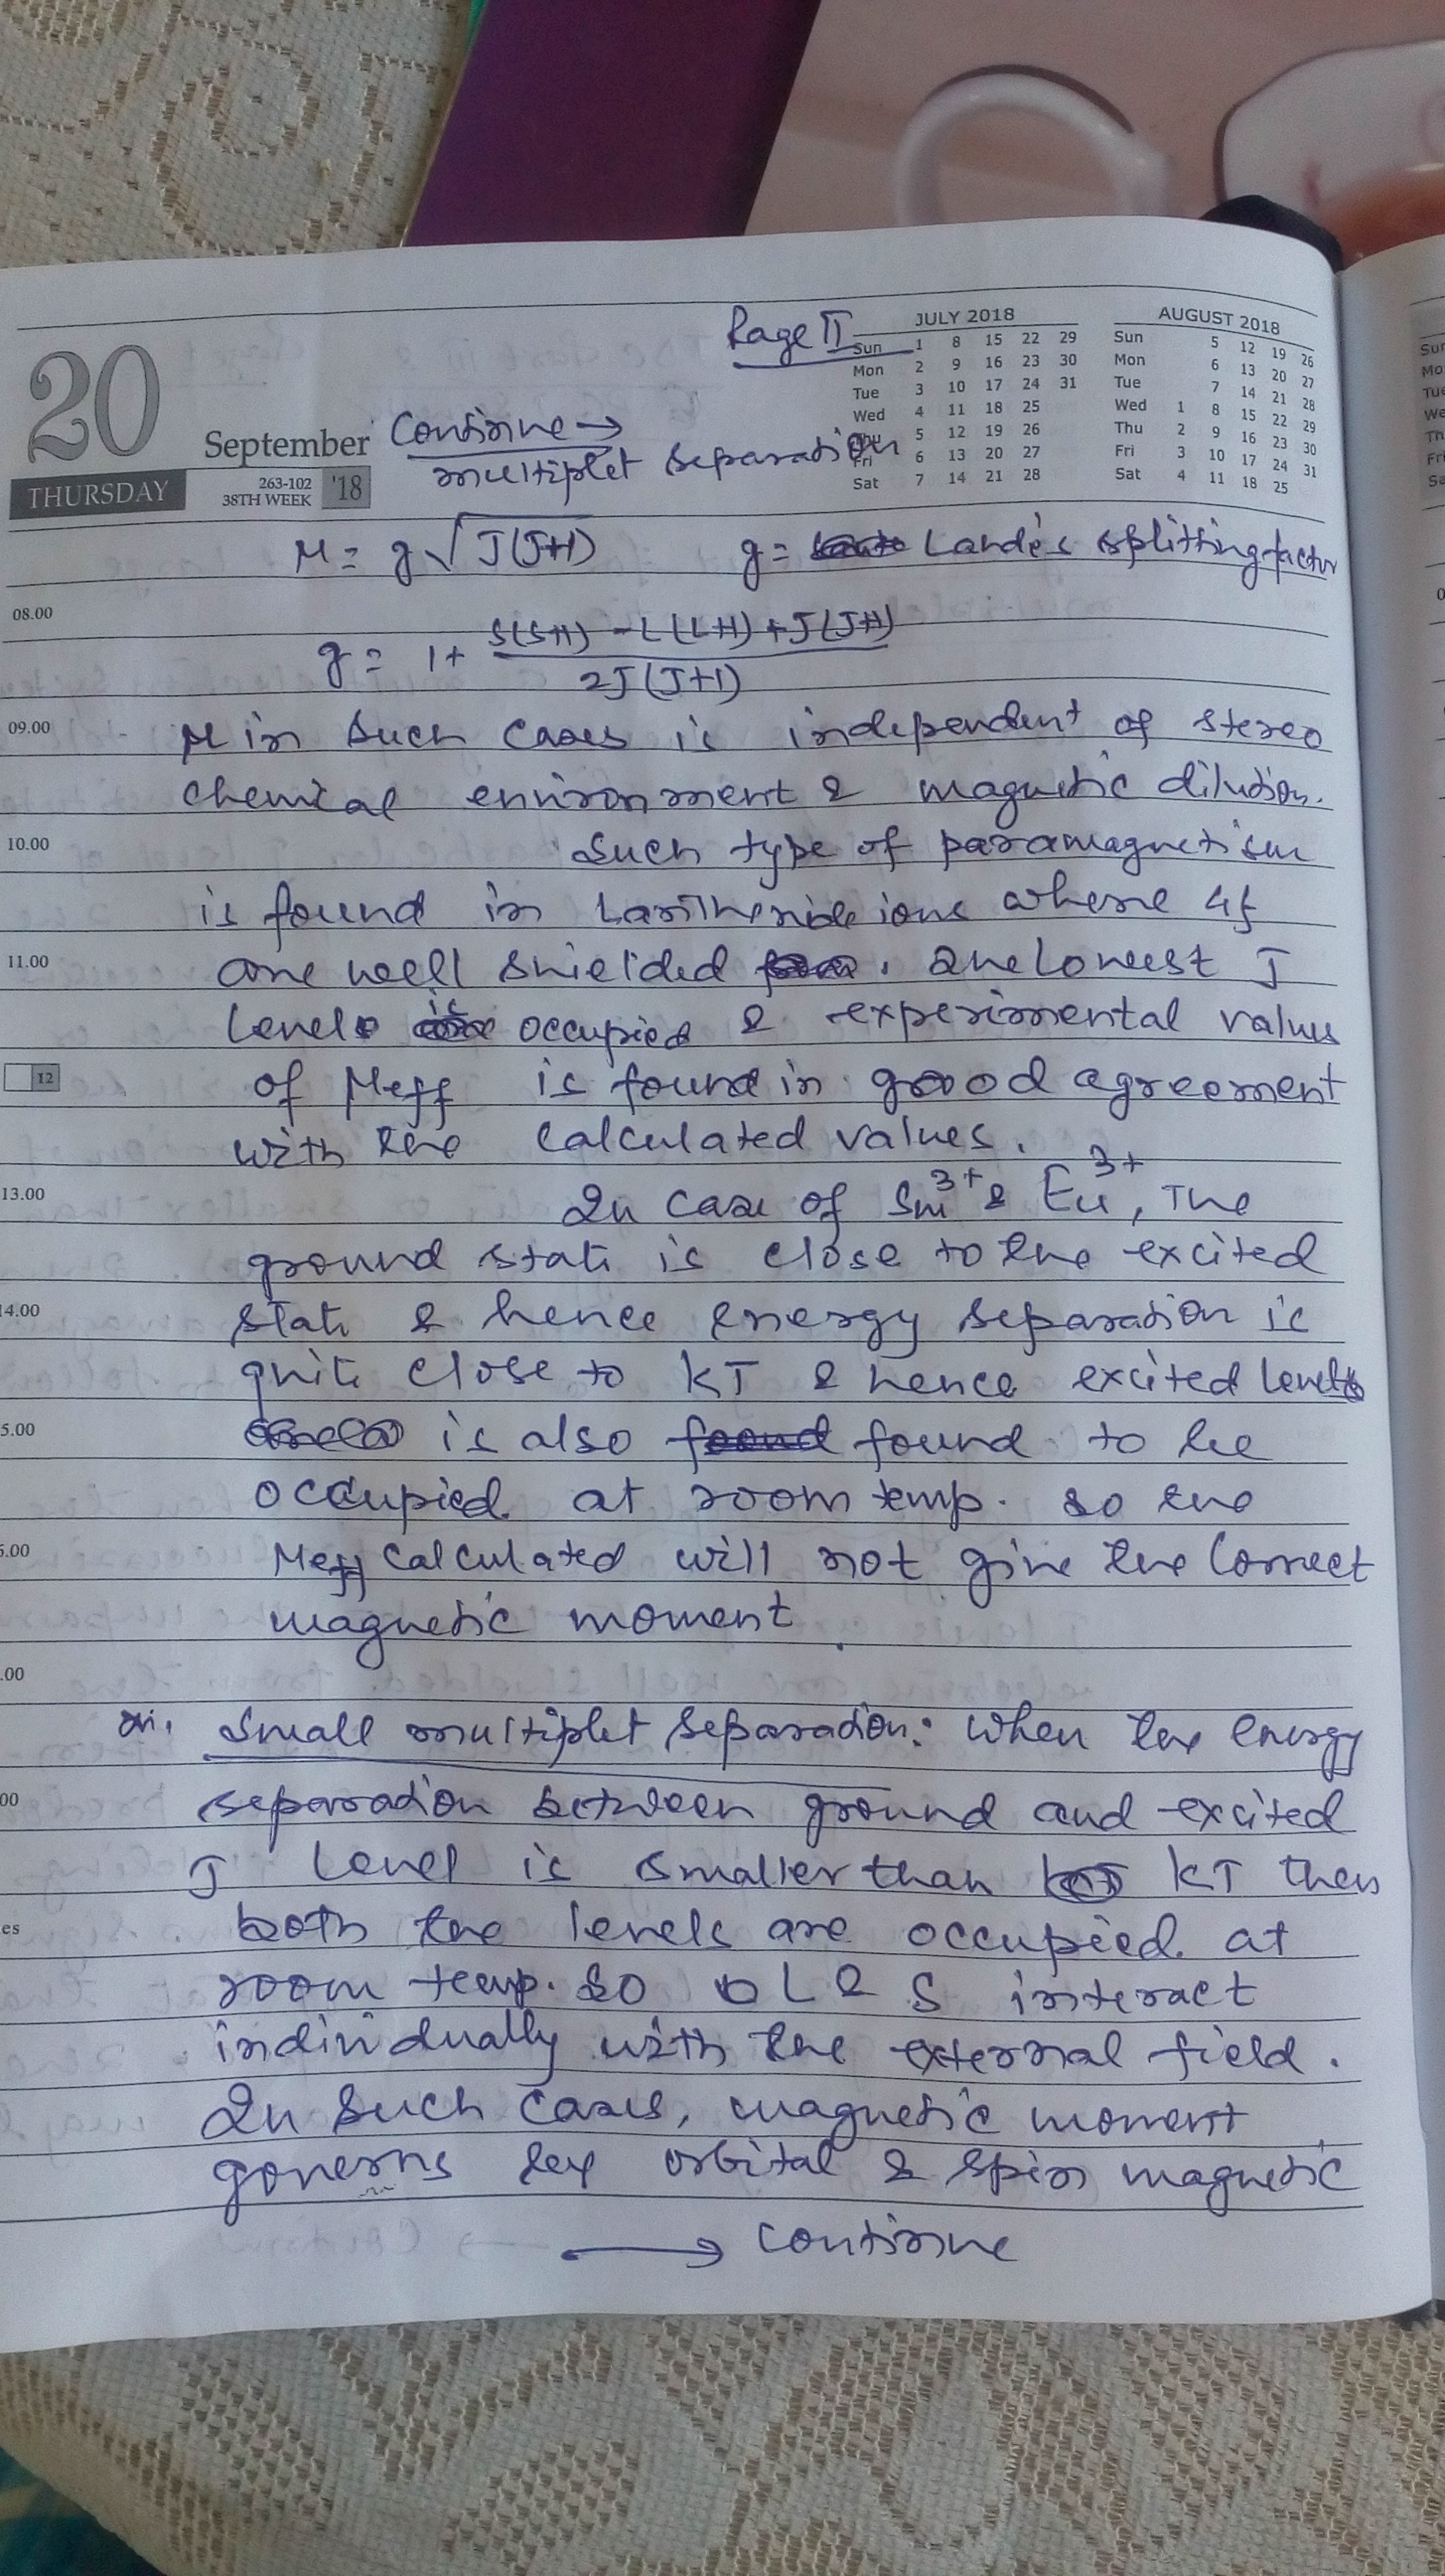 Page II
JULY 2018
Sun 1 8 15 22 29
Mon 2 9 16 23 30
Tue 3 10 17 24 31
Wed 4 11 18 25
Thu 5 12 19 26
Fri 6 13 20 27
Sat 7 14 21 28
AUGUST 2018
Sun 5 12 19 26
Mon 6 13 20 27
Tue 7 14 21 28
Wed 1 8 15 22 29
Thu 2 9 16 23 30
Fri 3 10 17 24 31
Sat 4 11 18 25
20
September
THURSDAY
263-102
38TH WEEK
'18
Continue →
multiplet separation
μ = g √J(J+1) g = Lande's splitting factor
08.00
g = 1 + S(S+1) - L(L+1) + J(J+1)
2J(J+1)
09.00 μ in such cases is independent of stereo
chemical environment & magnetic dilution.
10.00 Such type of paramagnetism
is found in Lanthenide ions where 4f
11.00 are well shielded. The lowest J
level is occupied & experimental values
12 of μeff is found in good agreement
with the calculated values.
13.00 In case of Sm3+ & Eu3+, The
ground state is close to the excited
14.00 state & hence energy separation is
quite close to KT & hence excited level
5.00 is also found found to be
occupied at room temp. so the
6.00 μeff calculated will not give the correct
magnetic moment.
.00
Small multiplet separation: When the energy
00 separation between ground and excited
J level is smaller than KT then
es both the levels are occupied at
room temp. so L & S interact
individually with the external field.
In such cases, magnetic moment
governs by orbital & spin magnetic
→ continue